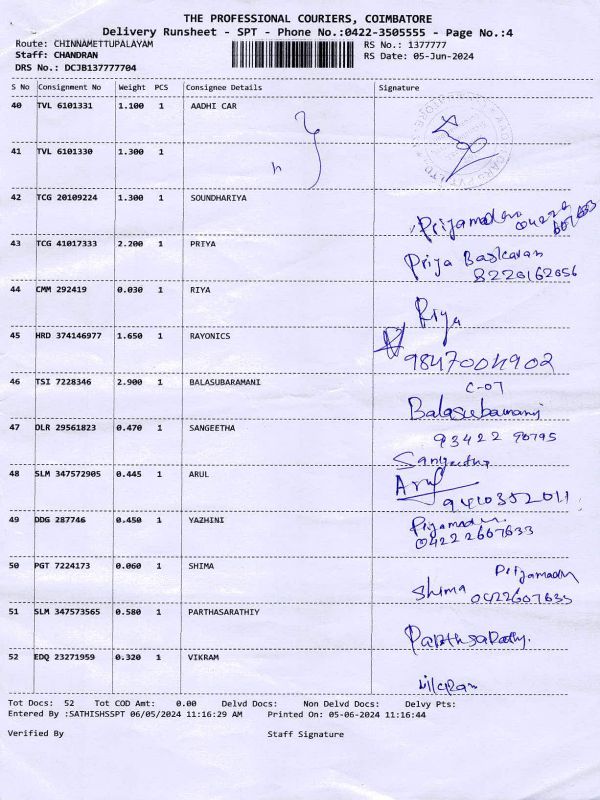 THE PROFESSIONAL COURIERS, COIMBATORE
Delivery Runsheet - SPT - Phone No.:0422-3505555 - Page No.:4
Route: CHINNAMETTUPALAYAM RS No.: 1377777
Staff: CHANDRAN RS Date: 05-Jun-2024
DRS No.: DCJB137777704
S No Consignment No Weight PCS Consignee Details Signature
40 TVL 6101331 1.100 1 AADHI CAR
41 TVL 6101330 1.300 1
42 TCG 20109224 1.300 1 SOUNDHARIYA
Priyamadhu
43 TCG 41017333 2.200 1 PRIYA Priya Baskaran
8220162056
44 CMM 292419 0.030 1 RIYA
Riya
45 HRD 374146977 1.650 1 RAYONICS
9847004902
46 TSI 7228346 2.900 1 BALASUBARAMANI C-07
Balasubamani
47 DLR 29561823 0.470 1 SANGEETHA 93422 90795
Sangeetha
48 SLM 347572905 0.445 1 ARUL Arul
9410352011
49 DDG 287746 0.450 1 YAZHINI Priyamadhu
04222607633
50 PGT 7224173 0.060 1 SHIMA Priyamadhu
Shima 0422607633
51 SLM 347573565 0.580 1 PARTHASARATHIY
Parthsarathy.
52 EDQ 23271959 0.320 1 VIKRAM
Vikram
Tot Docs: 52 Tot COD Amt: 0.00 Delvd Docs: Non Delvd Docs: Delvy Pts:
Entered By :SATHISHSSPT 06/05/2024 11:16:29 AM Printed On: 05-06-2024 11:16:44
Verified By Staff Signature